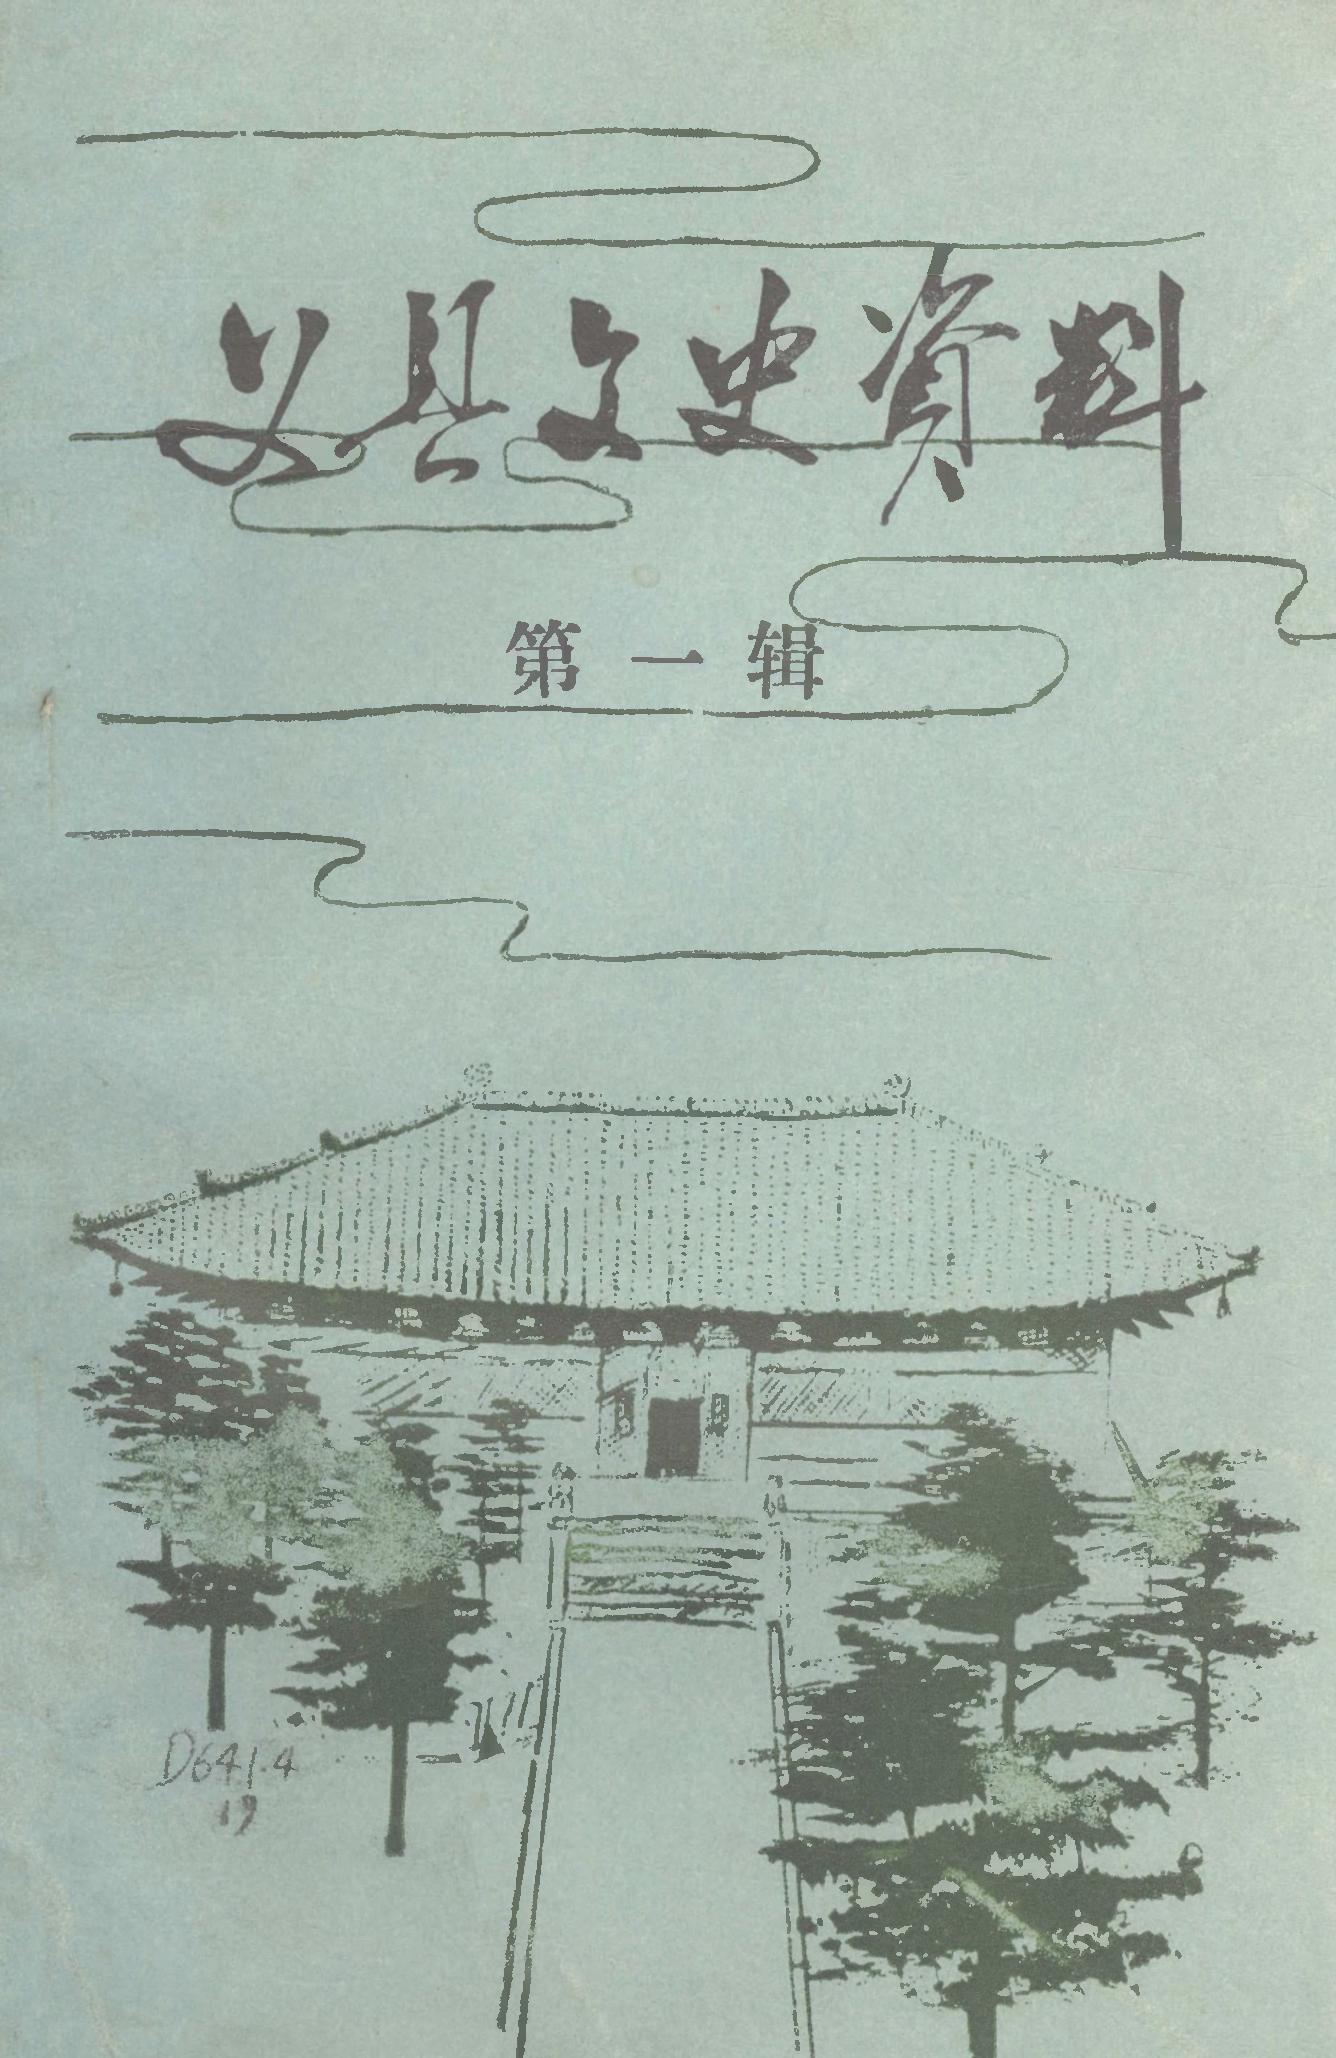 义县文史资料
第一辑
D641.4
19